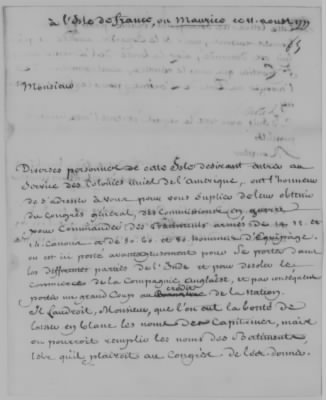 à l'Isle de france, ou Maurice ce 11 aoust 1777
Monsieur
Diverses personnes de cette Isle desirant entrer au
Service des Colonies unies de l'amerique, ont l'honneur
de s'adresser à vous pour vous suplier de leur obtenir
du Congrés général, des Commissions en guerre
pour Commander des Batiments armés de 14. 12. et
16. Canons et de 50. 60. et 80. hommes d'Equipage.
on est ici porté avantageusement pour se porter dans
les differentes parties de l'Inde et pour desoler le
commerce de la Compagnie anglaise, et par conséquent
porter un grand Corps au credit de la Nation.
Il faudroit, Monsieur, que l'on eut la bonté de
laisser en blanc les noms des Capitaines, mais
on pourroit remplir les noms des Batiments,
tels qu'il plairoit au Congrés de les donner.